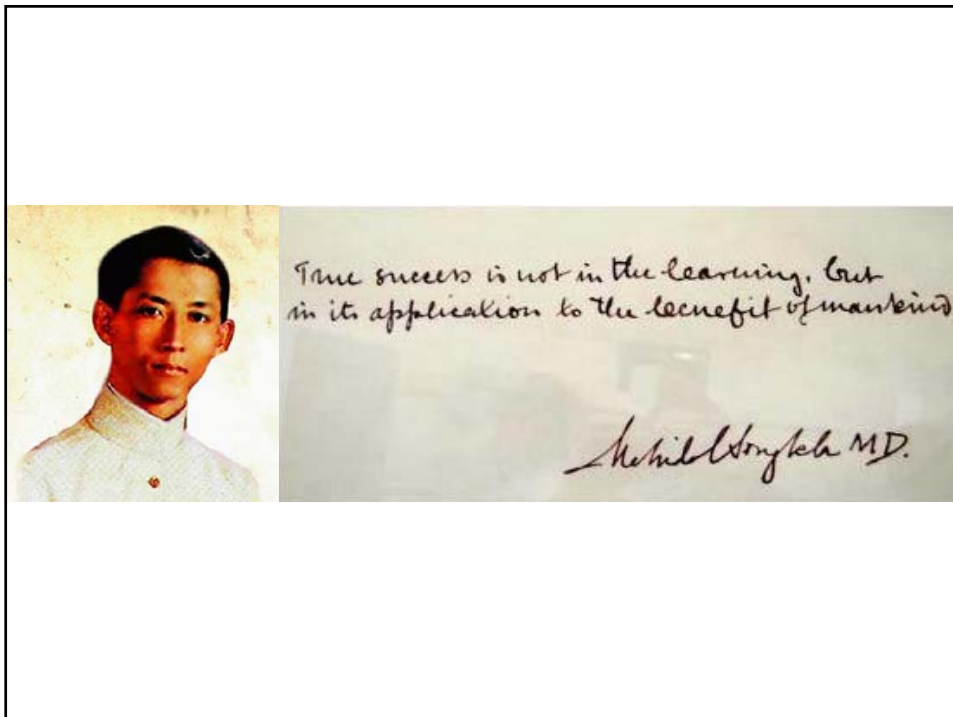 True success is not in the learning, but
in its application to the benefit of mankind
Mahidol Songkla MD.